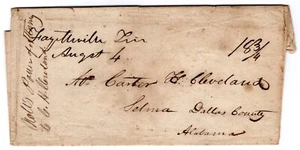 Fayettville Ten
Augst 4
18¾
Mr Carter H. Cleveland
Selma Dallas County
Alabama